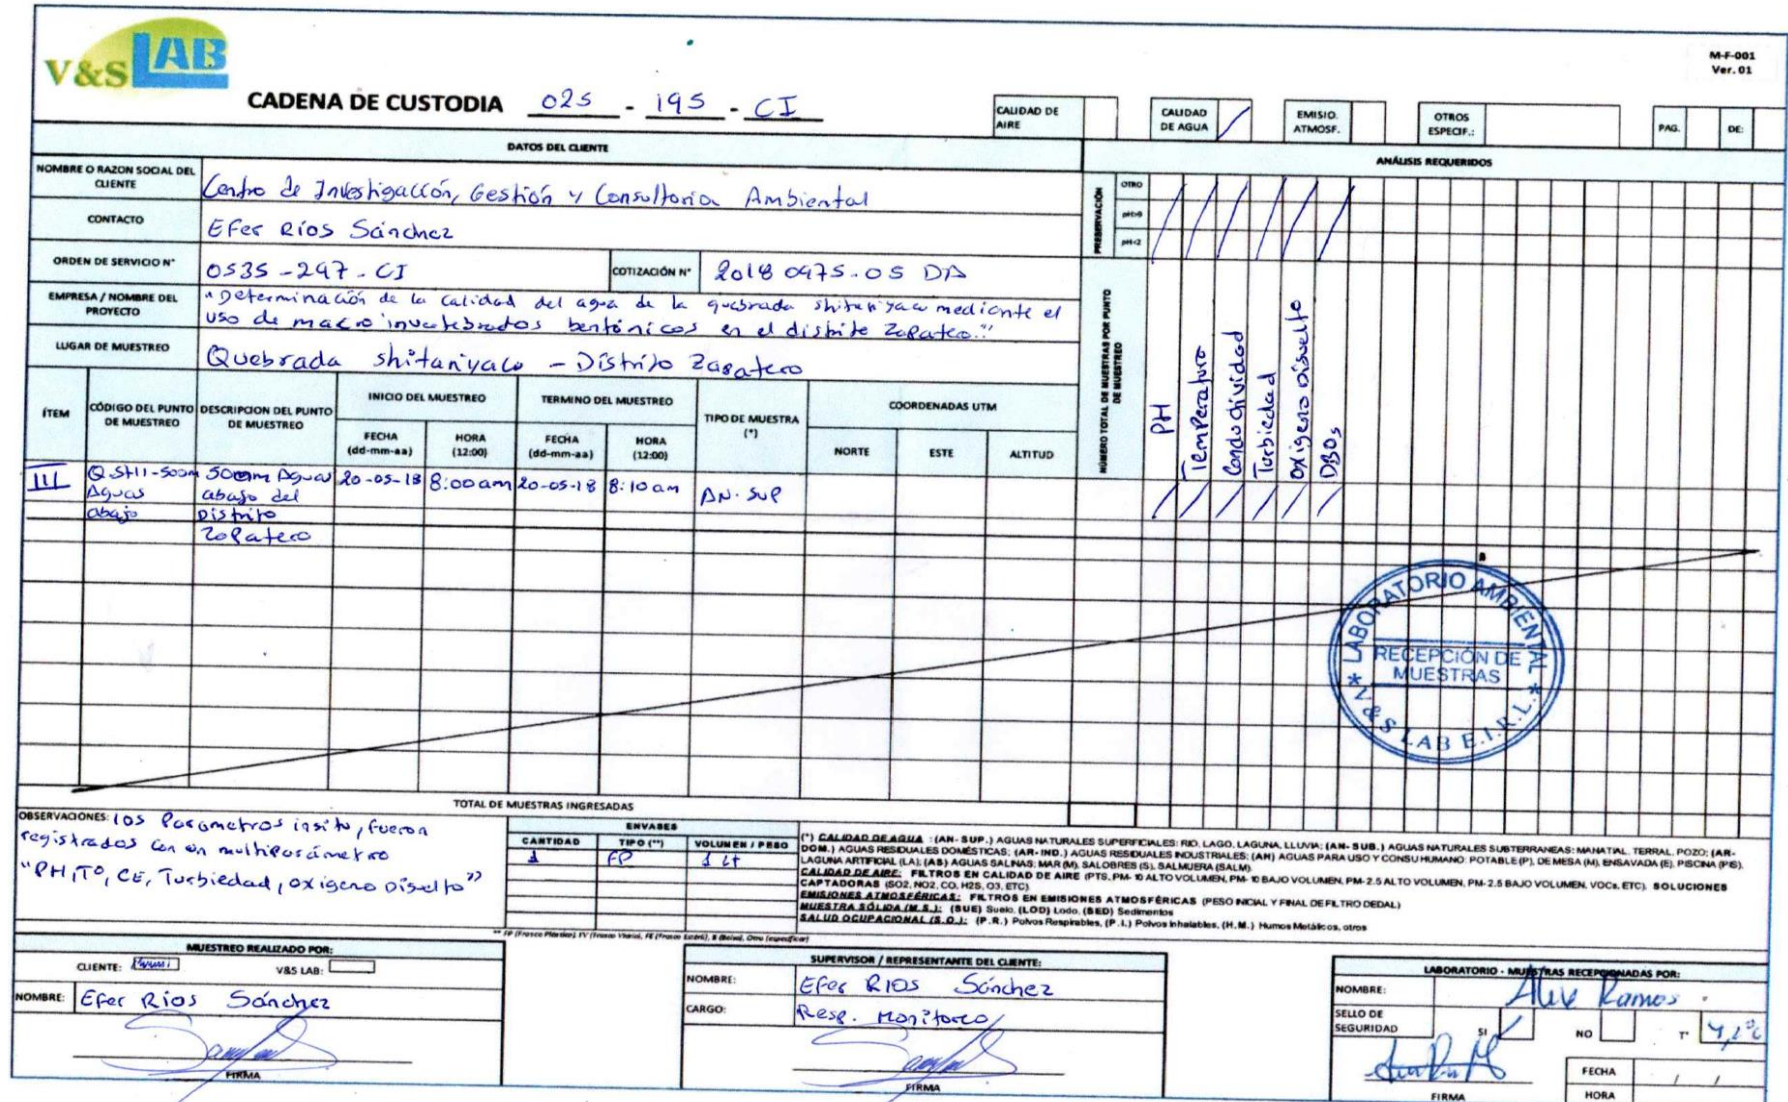 V&S LAB
M-F-001
Ver. 01
CADENA DE CUSTODIA 025 - 195 - CI
CALIDAD DE AIRE
CALIDAD DE AGUA /
EMISIO. ATMOSF.
OTROS ESPECIF.:
PAG.
DE:
DATOS DEL CLIENTE
ANÁLISIS REQUERIDOS
NOMBRE O RAZON SOCIAL DEL CLIENTE
Centro de Investigación, Gestión y Consultoria Ambiental
CONTACTO
Efer Ríos Sánchez
ORDEN DE SERVICIO N°
0535-297-CI
COTIZACIÓN N°
20180475-05 DA
EMPRESA / NOMBRE DEL PROYECTO
"Determinación de la calidad del agua de la quebrada shitariyacu mediante el
uso de macro invertebrados bentónicos en el distrito Zapatero."
LUGAR DE MUESTREO
Quebrada shitariyacu - Distrito Zapatero
PRESERVACIÓN
OTRO
pH>9
pH<2
NÚMERO TOTAL DE MUESTRAS POR PUNTO DE MUESTREO
PH
Temperatura
Conductividad
Turbiedad
Oxigeno Disuelto
DBO5
ÍTEM
CÓDIGO DEL PUNTO DE MUESTREO
DESCRIPCION DEL PUNTO DE MUESTREO
INICIO DEL MUESTREO
TERMINO DEL MUESTREO
TIPO DE MUESTRA (*)
COORDENADAS UTM
FECHA (dd-mm-aa)
HORA (12:00)
FECHA (dd-mm-aa)
HORA (12:00)
NORTE
ESTE
ALTITUD
III
Q.SHII-500m
Aguas
abajo
500m Aguas
abajo del
Distrito
Zapatero
20-05-18
8:00am
20-05-18
8:10am
AN-SUP
LABORATORIO AMBIENTAL
RECEPCIÓN DE
MUESTRAS
* V&S LAB E.I.R.L. *
TOTAL DE MUESTRAS INGRESADAS
OBSERVACIONES: los Parametros insitu, fueron
registrados con un multiparámetro
"PH, T°, CE, Turbiedad, oxigeno Disuelto"
ENVASES
CANTIDAD
TIPO (**)
VOLUMEN / PESO
1
FP
1 Lt
(*) CALIDAD DE AGUA : (AN-SUP.) AGUAS NATURALES SUPERFICIALES: RIO, LAGO, LAGUNA, LLUVIA; (AN-SUB.) AGUAS NATURALES SUBTERRANEAS: MANATIAL, TERRAL, POZO; (AR-
DOM.) AGUAS RESIDUALES DOMÉSTICAS; (AR-IND.) AGUAS RESIDUALES INDUSTRIALES; (AH) AGUAS PARA USO Y CONSU HUMANO: POTABLE (P), DE MESA (M), ENSAVADA (E), PISCINA (PIS),
LAGUNA ARTIFICIAL (LA); (AS) AGUAS SALINAS: MAR (M), SALOBRES (S), SALMUERA (SALM).
CALIDAD DE AIRE: FILTROS EN CALIDAD DE AIRE (PTS, PM-10 ALTO VOLUMEN, PM-10 BAJO VOLUMEN, PM-2.5 ALTO VOLUMEN, PM-2.5 BAJO VOLUMEN, VOCs, ETC). SOLUCIONES
CAPTADORAS (SO2, NO2, CO, H2S, O3, ETC)
EMISIONES ATMOSFÉRICAS: FILTROS EN EMISIONES ATMOSFÉRICAS (PESO INICIAL Y FINAL DE FILTRO DEDAL)
MUESTRA SÓLIDA (M.S.): (SUE) Suelo, (LOD) Lodo, (SED) Sedimentos
SALUD OCUPACIONAL (S.O.): (P.R.) Polvos Respirables, (P.I.) Polvos Inhalables, (H.M.) Humos Metálicos, otros
** FP (Frasco Plástico), FV (Frasco Vidrio), FE (Frasco Estéril), B (Bolsa), Otro (especificar)
MUESTREO REALIZADO POR:
CLIENTE:
V&S LAB:
NOMBRE: Efer Ríos Sánchez
FIRMA
SUPERVISOR / REPRESENTANTE DEL CLIENTE:
NOMBRE: Efer Ríos Sánchez
CARGO: Resp. Monitoreo
FIRMA
LABORATORIO - MUESTRAS RECEPCIONADAS POR:
NOMBRE: Alex Ramos
SELLO DE SEGURIDAD
SI
NO
T° 4,2°C
FIRMA
FECHA / /
HORA